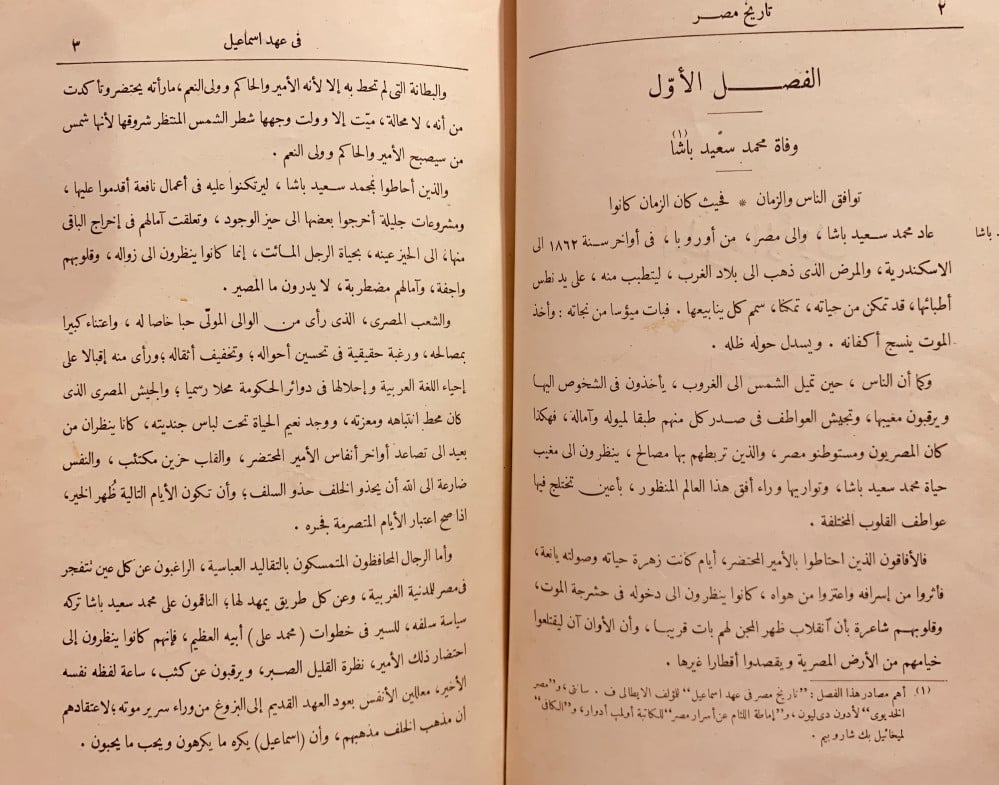 ٢
تاريخ مصر
الفصل الأوّل
وفاة محمد سعيد باشا (١)
توافق الناس والزمان * فحيث كان الزمان كانوا
عاد محمد سعيد باشا، والى مصر، من أوروبا، فى أواخر سنة ١٨٦٢ الى
باشا
الاسكندرية، والمرض الذى ذهب الى بلاد الغرب، ليتطبب منه، على يد نطس
أطبائها، قد تمكن من حياته، تمكنا، سمم كل ينابيعها. فبات ميؤسا من نجاته: وأخذ
الموت ينسج أكفانه. ويسدل حوله ظله.
وكما أن الناس، حين تميل الشمس الى الغروب، يأخذون فى الشخوص اليها
ويرقبون مغيبها، وتجيش العواطف فى صدر كل منهم طبقا لميوله وآماله، فهكذا
كان المصريون ومستوطنو مصر، والذين تربطهم بها مصالح، ينظرون الى مغيب
حياة محمد سعيد باشا، وتواريها وراء أفق هذا العالم المنظور، بأعين تختلج فيها
عواطف القلوب المختلفة.
فالأفاقون الذين احتاطوا بالأمير المحتضر، أيام كانت زهرة حياته وصولته يانعة،
فأثروا من إسرافه واعتزوا من هواه، كانوا ينظرون الى دخوله فى حشرجة الموت،
وقلوبهم شاعرة بأن آنقلاب ظهر المجن لهم بات قريبا، وأن الأوان آن ليقتلعوا
خيامهم من الأرض المصرية ويقصدوا أقطارا غيرها.
(١) أهم مصادر هذا الفصل: "تاريخ مصر فى عهد اسماعيل" للمؤلف الايطالى ف. سانتى، و"مصر
الخديوى" لأدون دى ليون، و"إماطة اللثام عن أسرار مصر" للكاتبة أولمب أدوار، و"الكافى"
لميخائيل بك شاروبيم.
فى عهد اسماعيل
٣
والبطانة التى لم تحط به إلا لأنه الأمير والحاكم وولى النعم، ما رأته يحتضر وتأكدت
من أنه، لا محالة، ميّت إلا وولت وجهها شطر الشمس المنتظر شروقها لأنها شمس
من سيصبح الأمير والحاكم وولى النعم.
والذين أحاطوا بمحمد سعيد باشا، ليرتكنوا عليه فى أعمال نافعة أقدموا عليها،
ومشروعات جليلة أخرجوا بعضها الى حيز الوجود، وتعلقت آمالهم فى إخراج الباقى
منها، الى الحيز عينه، بحياة الرجل المائت، إنما كانوا ينظرون الى زواله، وقلوبهم
واجفة، وآمالهم مضطربة، لا يدرون ما المصير.
والشعب المصرى، الذى رأى من الوالى المولّى حبا خاصا له، واعتناء كبيرا
بمصالحه، ورغبة حقيقية فى تحسين أحواله؛ وتخفيف أثقاله؛ ورأى منه إقبالا على
إحياء اللغة العربية وإحلالها فى دوائر الحكومة محلا رسميا؛ والجيش المصرى الذى
كان محط انتباهه ومعزته، ووجد نعيم الحياة تحت لباس جنديته، كانا ينظران من
بعيد الى تصاعد أواخر أنفاس الأمير المحتضر، والقلب حزين مكتئب، والنفس
ضارعة الى الله أن يحذو الخلف حذو السلف؛ وأن تكون الأيام التالية ظُهر الخير،
اذا صح اعتبار الأيام المتصرمة فجره.
وأما الرجال المحافظون المتمسكون بالتقاليد العباسية، الراغبون عن كل عين تتفجر
فى مصر للمدنية الغربية، وعن كل طريق يمهد لها؛ الناقمون على محمد سعيد باشا تركه
سياسة سلفه، للسير فى خطوات (محمد على) أبيه العظيم، فإنهم كانوا ينظرون إلى
احتضار ذلك الأمير، نظرة القليل الصبر، ويرقبون عن كثب، ساعة لفظه نفسه
الأخير، معللين الأنفس بعود العهد القديم إلى البزوغ من وراء سرير موته؛ لاعتقادهم
أن مذهب الخلف مذهبهم، وأن (اسماعيل) يكره ما يكرهون ويحب ما يحبون.